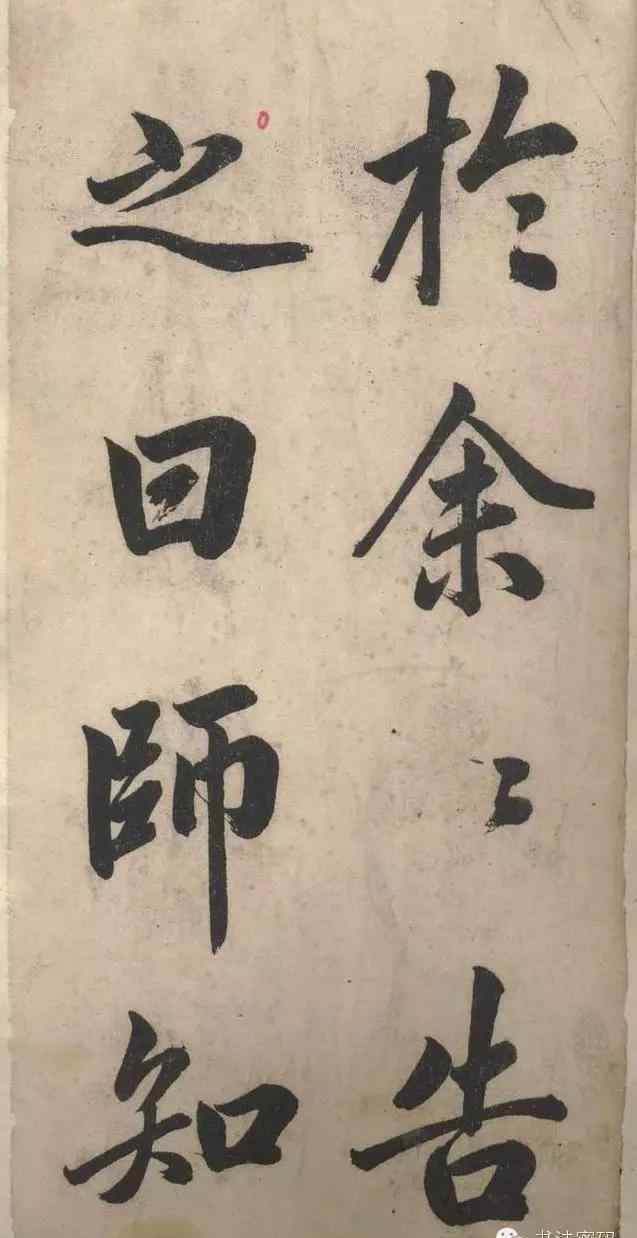 於余〻告
之曰師知
书法密码